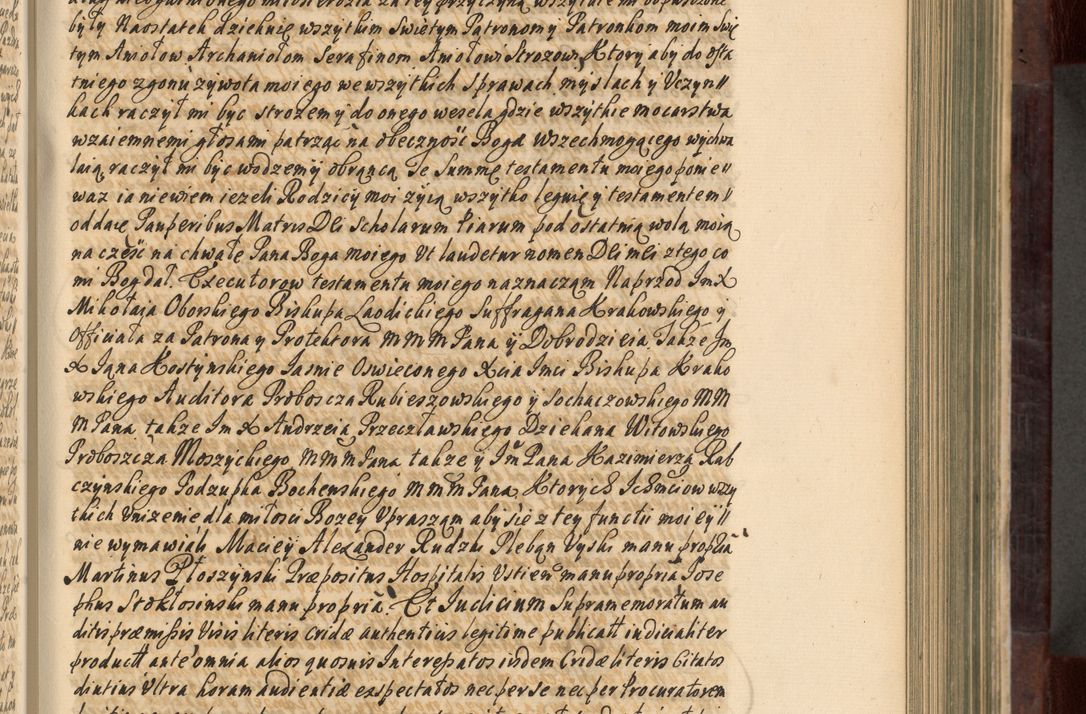 były Naostatek dziekuię wszytkim Swiętym Patronom y Patronkom moim Swię
tym Aniołow Archaniołom Serafinom Aniołowi Strozowi, Ktory aby do osta
tniego zgonu zywota moiego we wszytkich Sprawach, myslach y Uczyn//
kach raczył mi byc strozem y do onego wesela gdzie wszytkie mocarstwa
wzaiemniemi głosami patrząc na obecznosc Boga Wszechmogącego wychwa
laią, raczył mi byc wodzem y obrąncą Te Summę testamentu moiego ponie//
waz ia niewiem iezeli Rodzicy moi zyią wszytko leguię y testamentem//
oddaię Pauperibus Matris DEi Scholarum Piarum pod ostatnią wolą moią
na część na chwałę Pana Boga moiego Ut laudetur nomen DEi mEi z tego co
mi Bog dał. Executorow testamentu moiego naznaczam Naprzod Im X
Mikołaia Oborskiego Biskupa Laodickiego Suffragana Krakowskiego y
Officiała za Patrona y Protektora MMM Pana y Dobrodzieia Takze Im
X Iana Kostynskiego Iasnie Oswieconego Xcia Imci Biskupa Krako
wskiego Auditora Proboscza Rubieszowskiego y Sochaczowskiego MM
M Pana takze Im X Andrzeia Przeczławskiego Dziekana Witowskiego
Proboszcza Moszyckiego MMM Pana takze y Im Pana Kazimierza Rab
czynskiego Podzupka Bochenskiego MMM Pana, Ktorych Ichmciow wszy
tkich Unizenie dla miłosci Bozey Upraszam aby się z tey functii moiey//
nie wymawiali Maciey Alexander Rudzki Pleban Uyski manu propria
Martinus Płoszynski Præpositus Hospitalis Ustien manu propria Iose
phus Stokłosinski manu propria. Et Iudicium Supramemoratum au
ditis præmissis Visis literis Cridæ authentius legitime publicatt iudicialiter
productt ante omnia alios quosuis Interessatos iisdem Cridæ literis Citatos
diutius Ultra horam audientiæ exspectatos nec per se nec per Procuratorem